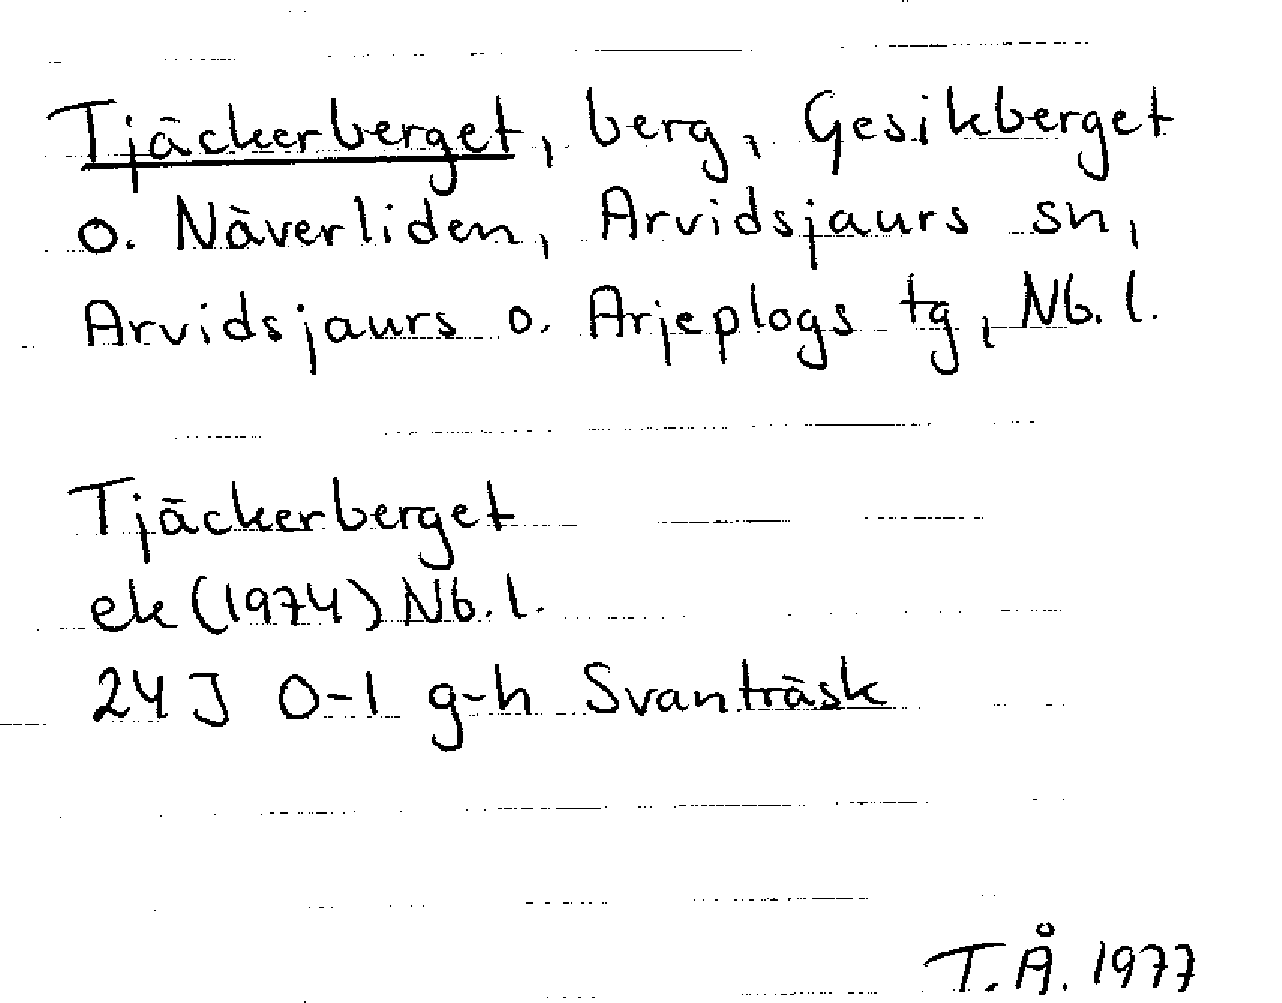 Tjäckerberget, berg, Gesikberget
o. Näverliden, Arvidsjaurs sn,
Arvidsjaurs o. Arjeplogs tg, Nb. l.
Tjäckerberget
ek (1974) Nb. l.
24 J 0-1 g-h Svanträsk
T. Å. 1977